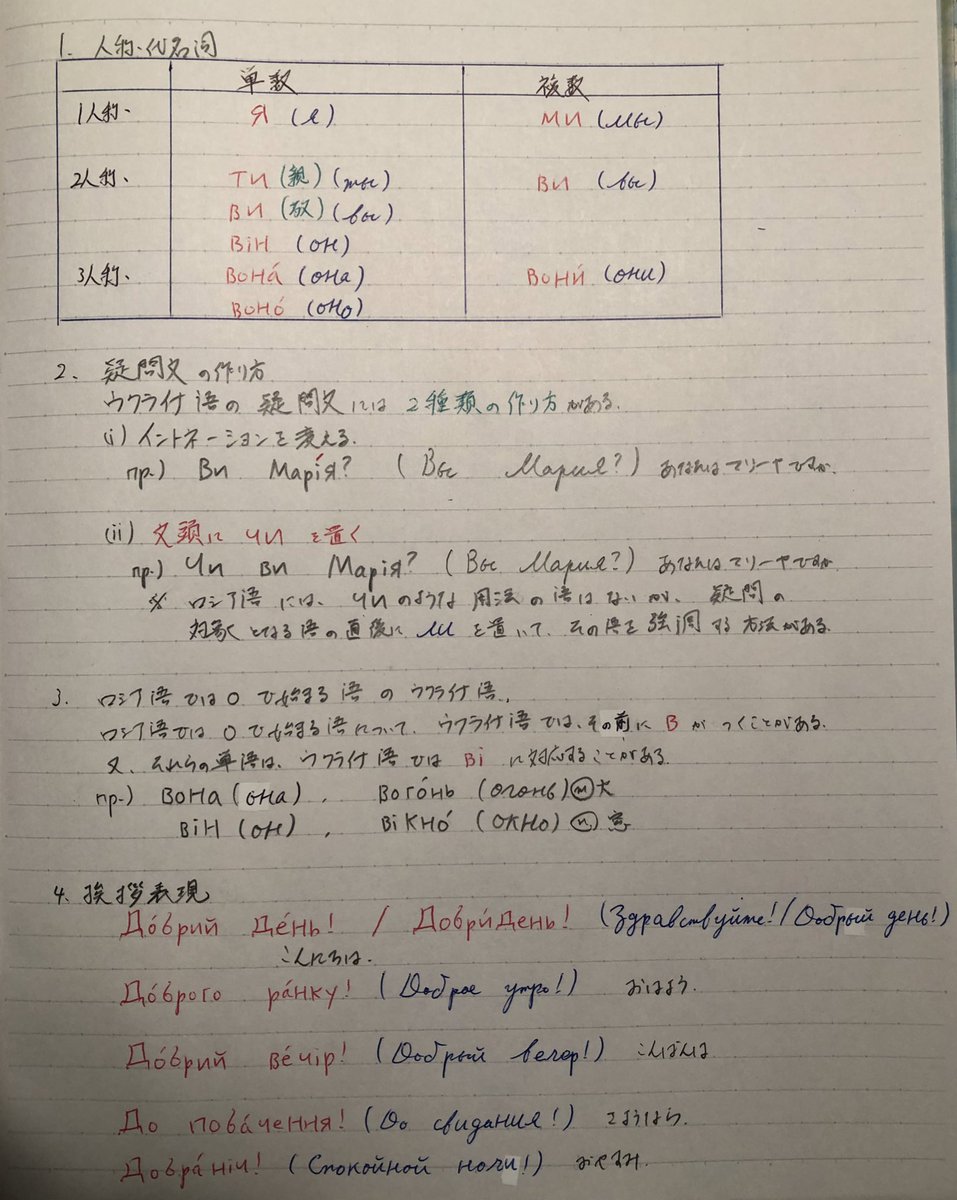 1. 人称代名詞
単数 複数
1人称 я (я) ми (мы)
2人称 ти (親) (ты) ви (вы)
ви (敬) (вы)
він (он)
3人称 вонá (она) вони́ (они)
вонó (оно)
2. 疑問文の作り方
ウクライナ語の疑問文には2種類の作り方がある.
(i) イントネーションを変える.
пр.) Ви Марíя? (Вы Мария?) あなたはマリーヤですか
(ii) 文頭に чи を置く
пр.) Чи ви Марія? (Вы Мария?) あなたはマリーヤですか
※ ロシア語には、чиのような用法の語はないが、疑問の
対象となる語の直後に ли を置いて、その語を強調する方法がある.
3. ロシア語ではoで始まる語のウクライナ語.
ロシア語ではoで始まる語について、ウクライナ語では、その前に в がつくことがある.
又、それらの単語は、ウクライナ語では ві に対応することがある.
пр.) вона (она), вогóнь (огонь) ⓜ火
він (он), вікнó (окно) ⓝ 窓
4. 挨拶表現
Дóбрий дéнь! / Добри́день! (Здравствуйте! / Добрый день!)
こんにちは.
Дóброго рáнку! (Доброе утро!) おはよう.
Дóбрий вéчір! (Добрый вечер!) こんばんは
До побáчення! (До свидания!) さようなら.
Добрáніч! (Спокойной ночи!) おやすみ.